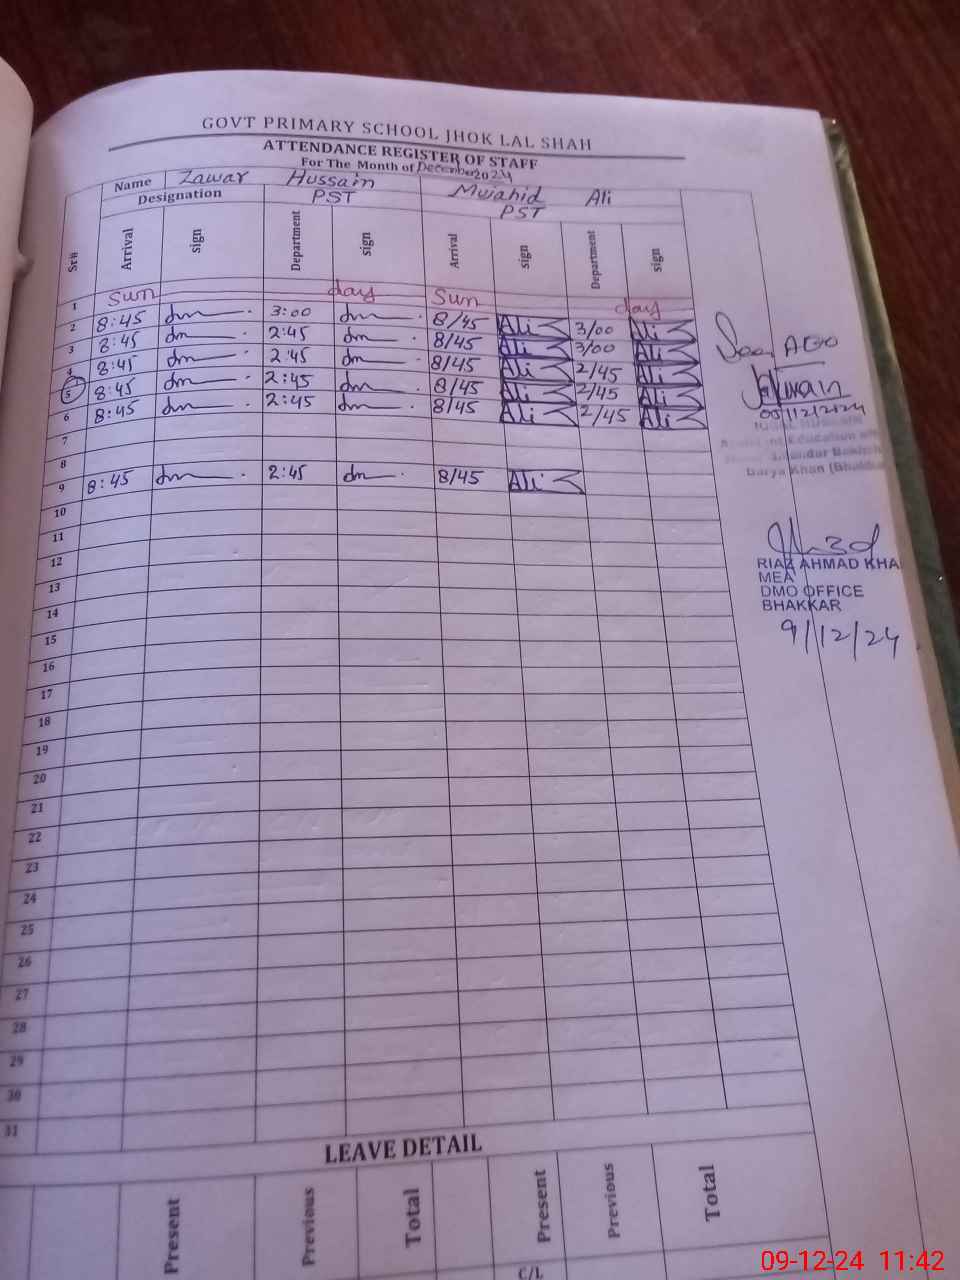 GOVT PRIMARY SCHOOL JHOK LAL SHAH
ATTENDANCE REGISTER OF STAFF
For The Month of December 2024
Name Zawar Hussain Mujahid Ali
Designation PST PST
Sr# Arrival sign Department sign Arrival sign Department sign
1 Sun day Sun day
2 8:45 dm 3:00 dm 8/45 Ali 3/00 Ali
3 8:45 dm 2:45 dm 8/45 Ali 3/00 Ali
4 8:45 dm 2:45 dm 8/45 Ali 2/45 Ali
5 8:45 dm 2:45 dm 8/45 Ali 2/45 Ali
6 8:45 dm 2:45 dm 8/45 Ali 2/45 Ali
7
8
9 8:45 dm 2:45 dm 8/45 Ali
10
11
12
13
14
15
16
17
18
19
20
21
22
23
24
25
26
27
28
29
30
31
Seen AEO
05/12/2024
Education
Darya Khan (Bhakkar
RIAZ AHMAD KHA
MEA
DMO OFFICE
BHAKKAR
9/12/24
LEAVE DETAIL
Present Previous Total Present Previous Total
C/L
09-12-24 11:42